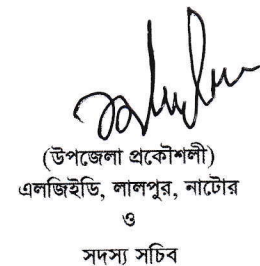 (উপজেলা প্রকৌশলী)
এলজিইডি, লালপুর, নাটোর
ও
সদস্য সচিব